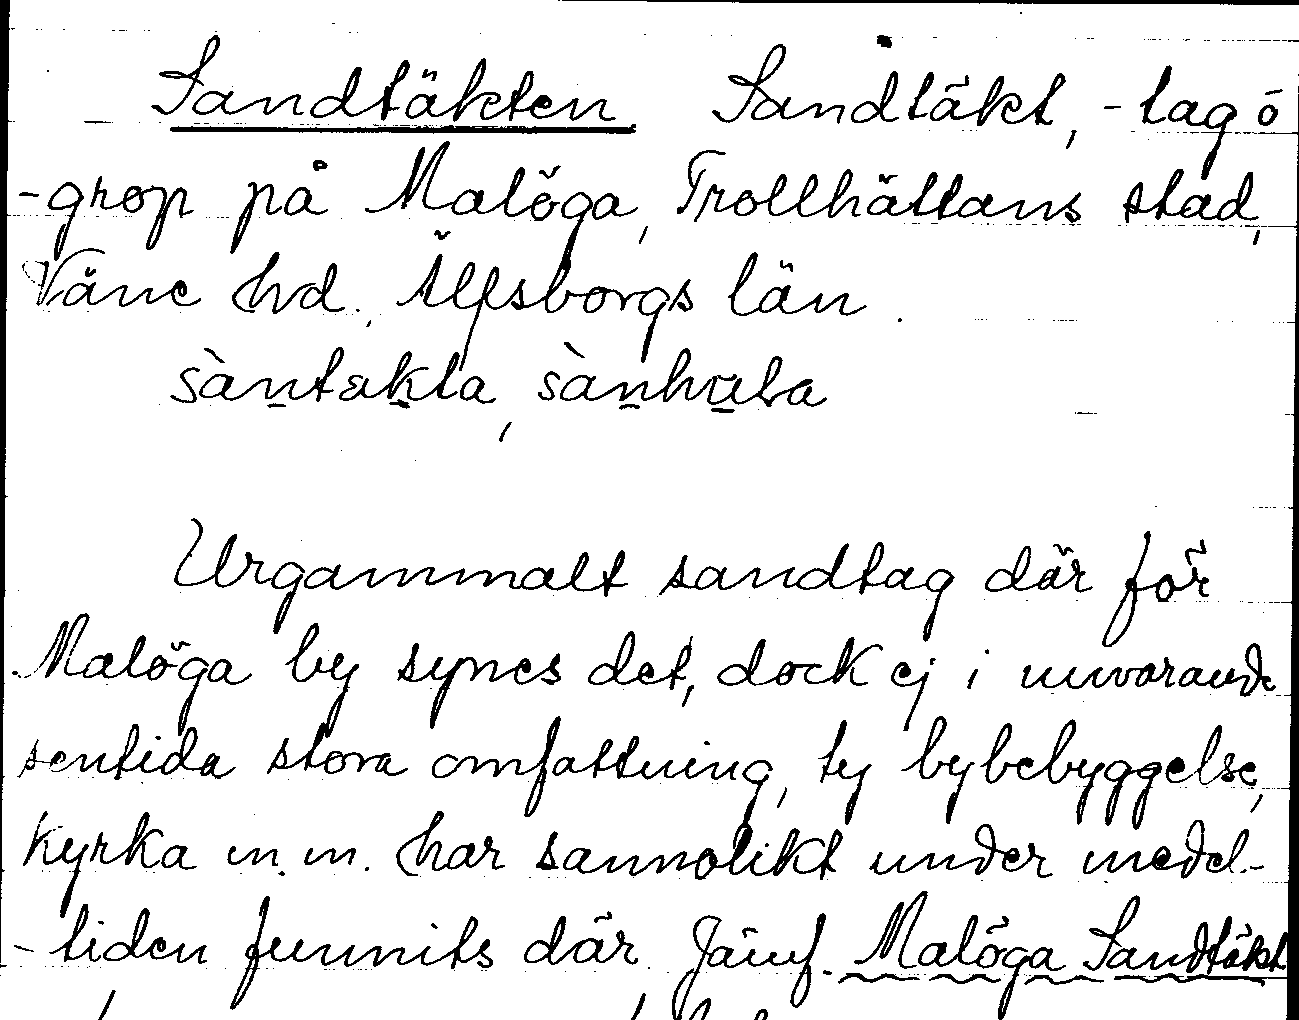 Sandtäkten Sandtäkt, -tag o
-grop på Malöga, Trollhättans stad,
Väne hd. Älfsborgs län.
sàntækta, sànhala
Urgammalt sandtag där för
Malöga by synes det, dock ej i nuvarande
sentida stora omfattning, ty bybebyggelse,
kyrka m.m. har sannolikt under medel-
-tiden funnits där. Jämf. Malöga Sandtäkt